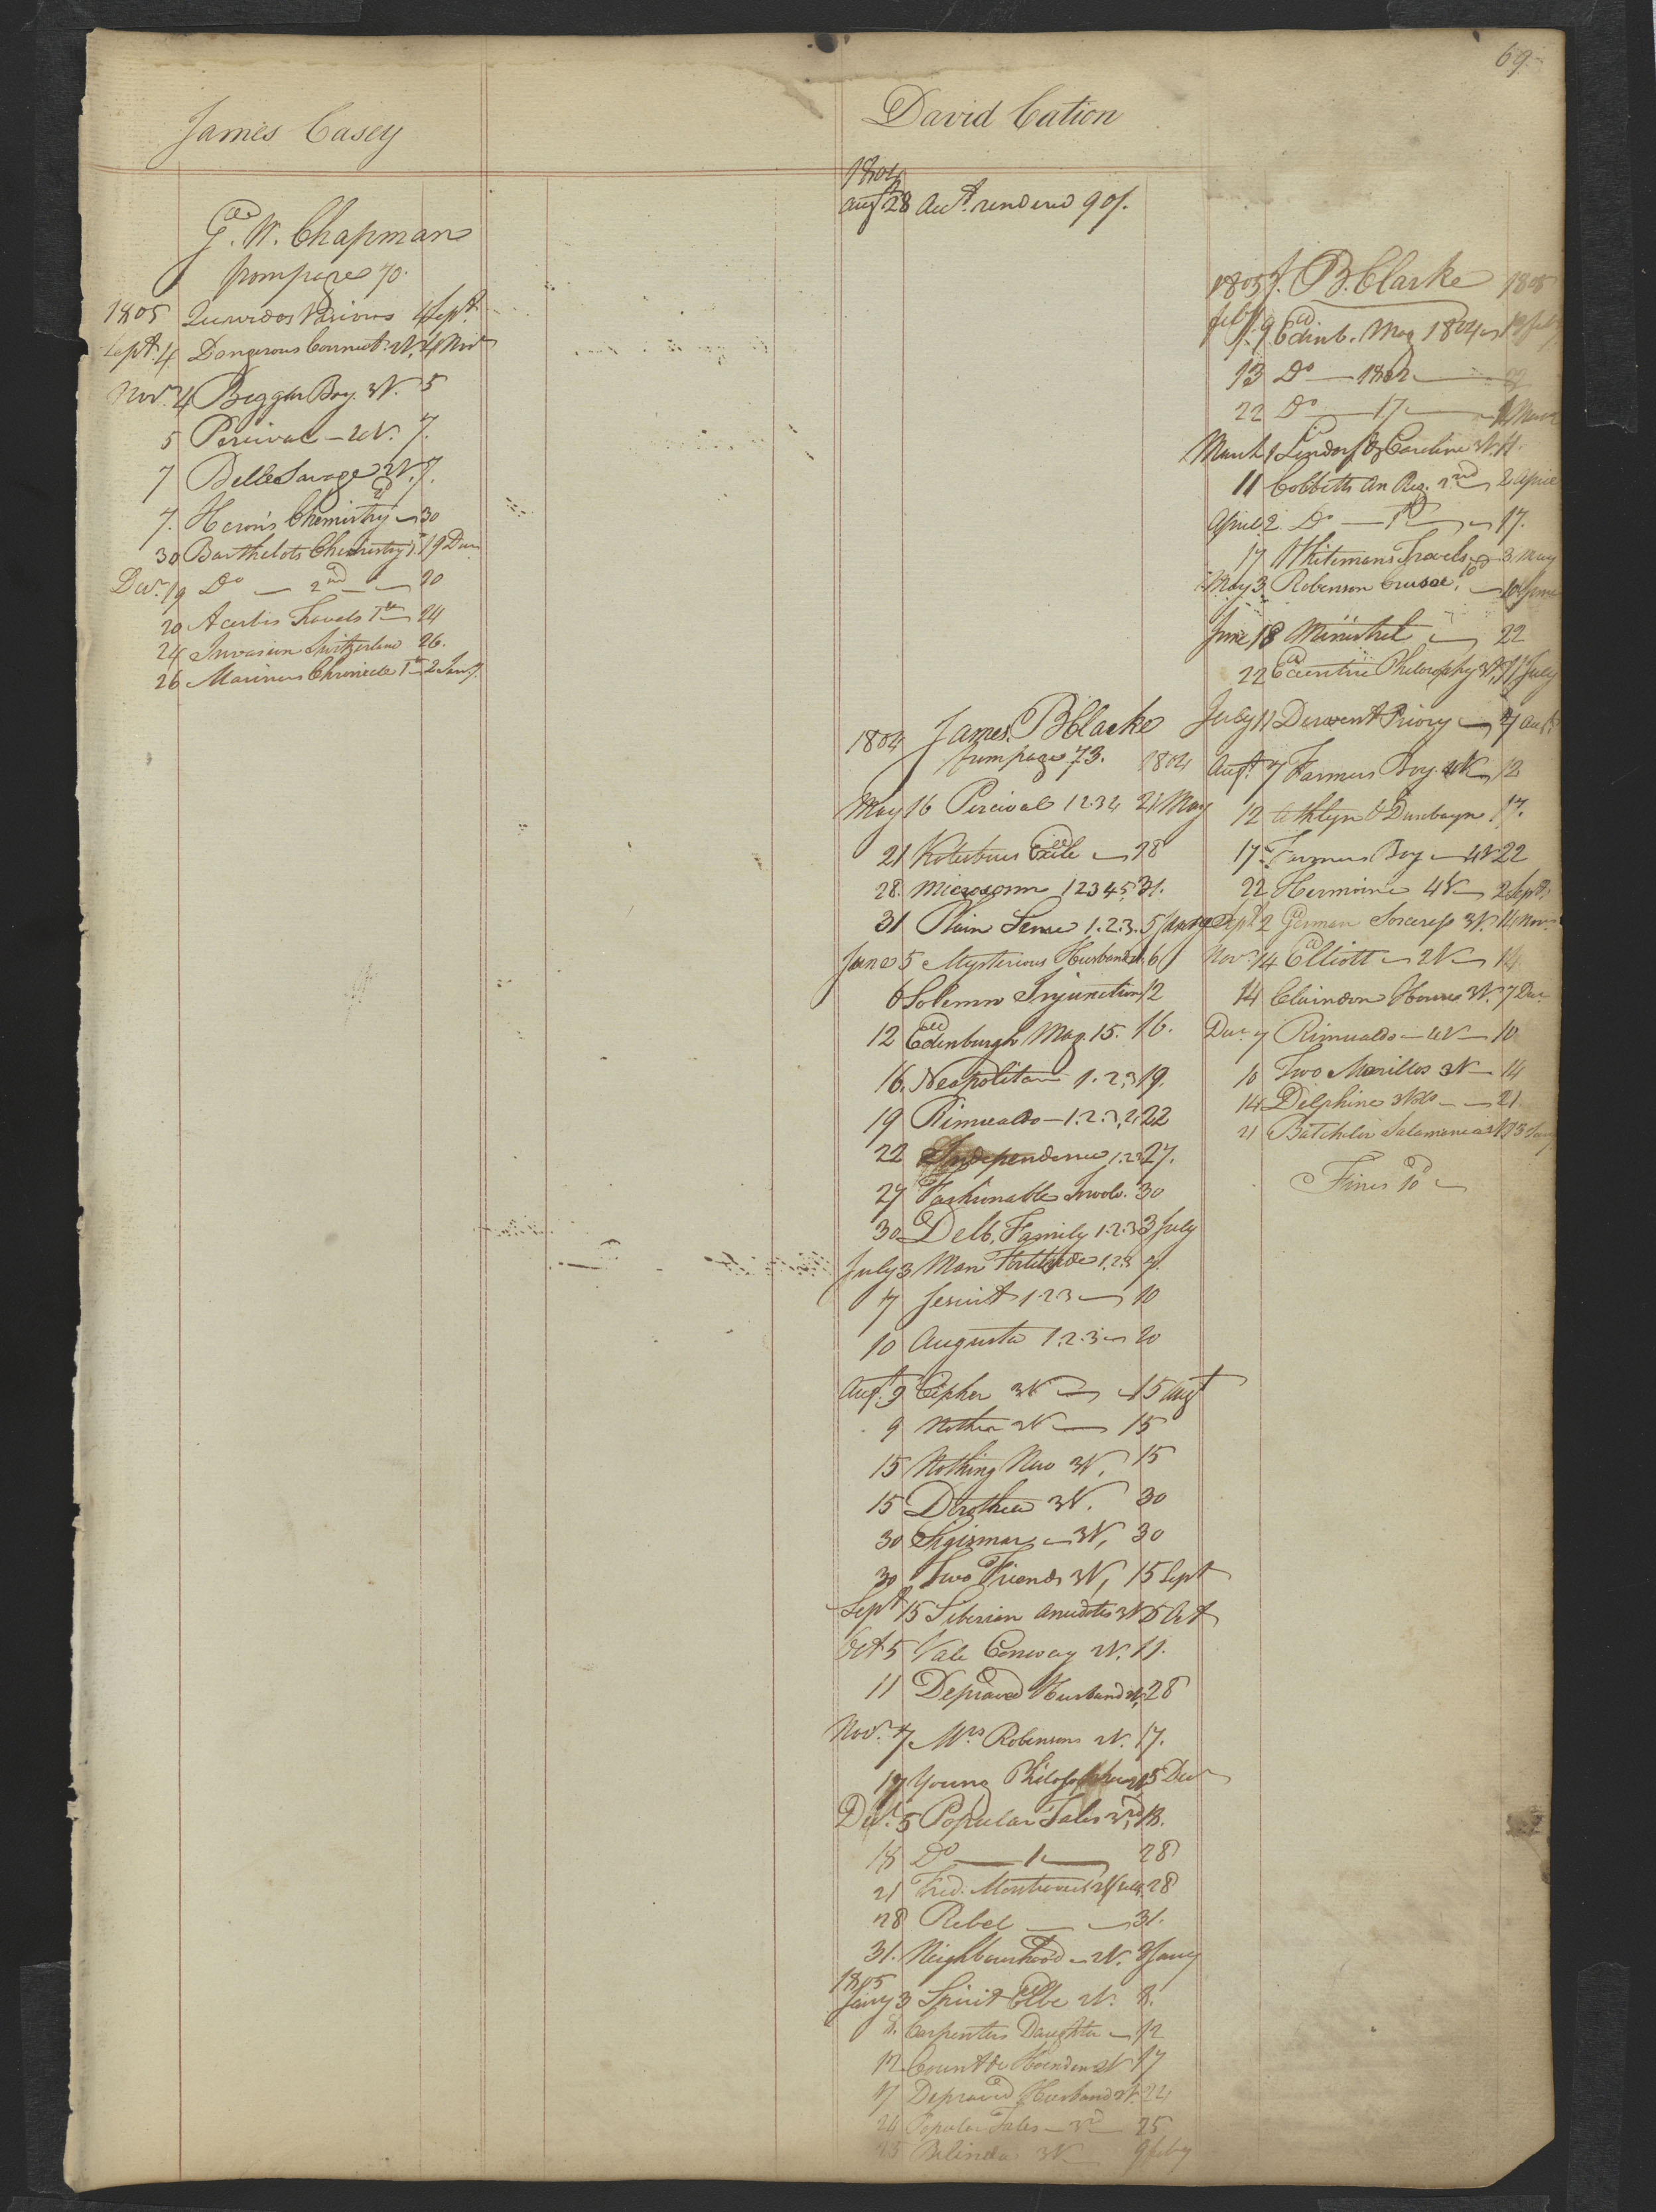 69.
James Casey
G. W. Chapman
from page 70.
1805 Quevedos Visions 4 Sept.
Sept. 4 Dangerous Connect. 2V. 4 Nov
Nov. 4 Beggar Boy 3V. 5
5 Percival — 4V. 7.
7 Belle Savage 2V. 7.
7. Heron's Chemistry 30
30 Barthelots Chemistry 1. 19 Dec
Dec. 19 Do — 2nd — 20
20 Acerbis Travels 1st 24
24 Invasion Switzerland 26.
26 Mariners Chronicle 1st 2 Jany.
David Cation
1804
Augt. 28 Acct. rendered 90/.
1804 James B Clarke
from page 73. 1804
May 16 Percival 1234 21 May
21 Kotzebues Exile 28
28. Microcosm 12345 31.
31 Plain Sense 1.2.3. 5 June
June 5 Mysterious Husband 6
6 Solemn Injunction 12
12 Edinburgh Mag. 15. 16.
16. Neapolitan 1.2.3 19.
19 Rimualdo — 1.2.3.4 22
22 Independence 1.2 27.
27 Fashionable Invol. 30
30 Delb. Family 1.2.3 3 July
July 3 Man Fortitude 1.2.3 7.
7 Jesuit 1.2.3 10
10 Augusta 1.2.3 20
Augt. 9 Cipher 3V 15 Augt
9 Mother 3V 15
15 Nothing New 3V. 15
15 Dorothea 3V. 30
30 Sigismar 3V, 30
30 Two Friends 3V, 15 Sept
Sept 15 Siberian Anecdotes 3V 5 Oct
Oct 5 Vale Conway 2V. 11.
11 Depraved Husband 2V. 28
Nov. 7 Mrs Robinsons 2V. 17.
17 Young Philosopher 2V 5 Dec
Dec. 5 Popular Tales 2nd 18.
18 Do — 1 — 28
21 Fred. 28
28 Rebel — 31.
31. Neighbourhood 2V. 3 Jany
1805
Jany 3 Spirit Elbe 2V. 8.
8. Carpenters Daughter 12
12 Count de 2V 17
17 Depraved Husband 2V. 24
24 Popular Tales — 3rd 25
25 Belinda 3V. 9 Feby
1805 J. B. Clarke 1805
Feby. 9 Edinb. Mag 1804 13 Feby
13 Do — 1802 — 22
22 Do — 17 — March
March 1 Lindorf & Caroline 3V. 11.
11 Cobbetts An Reg. 2nd 2 April
April 2 Do — 1st — 17.
17 Whitemans Travels 3 May
May 3 Robinson Crusoe. June
June 18 Minstrel 22
22 Eccentric Philosophy 3V. 11 July
July 11 Derwent Priory 7 Augt.
Augt. 7 Farmers Boy 4V 12
12 Athlyn & Dunbayn. 17.
17. Farmers Boy 4V 22
22 Hermoine 4V 2 Sept
Sept. 2 German Sorceress 3V. 14 Nov.
Nov. 14 Elliott 2V 14
14 Clairndon House 3V. 7 Dec
Dec. 7 Rimualdo — 4V — 10
10 Two Marillos 3V — 14
14 Delphine 3 Vols — 21.
21 Batchelor Salamanca 2V 5 Jany
Fines 10d